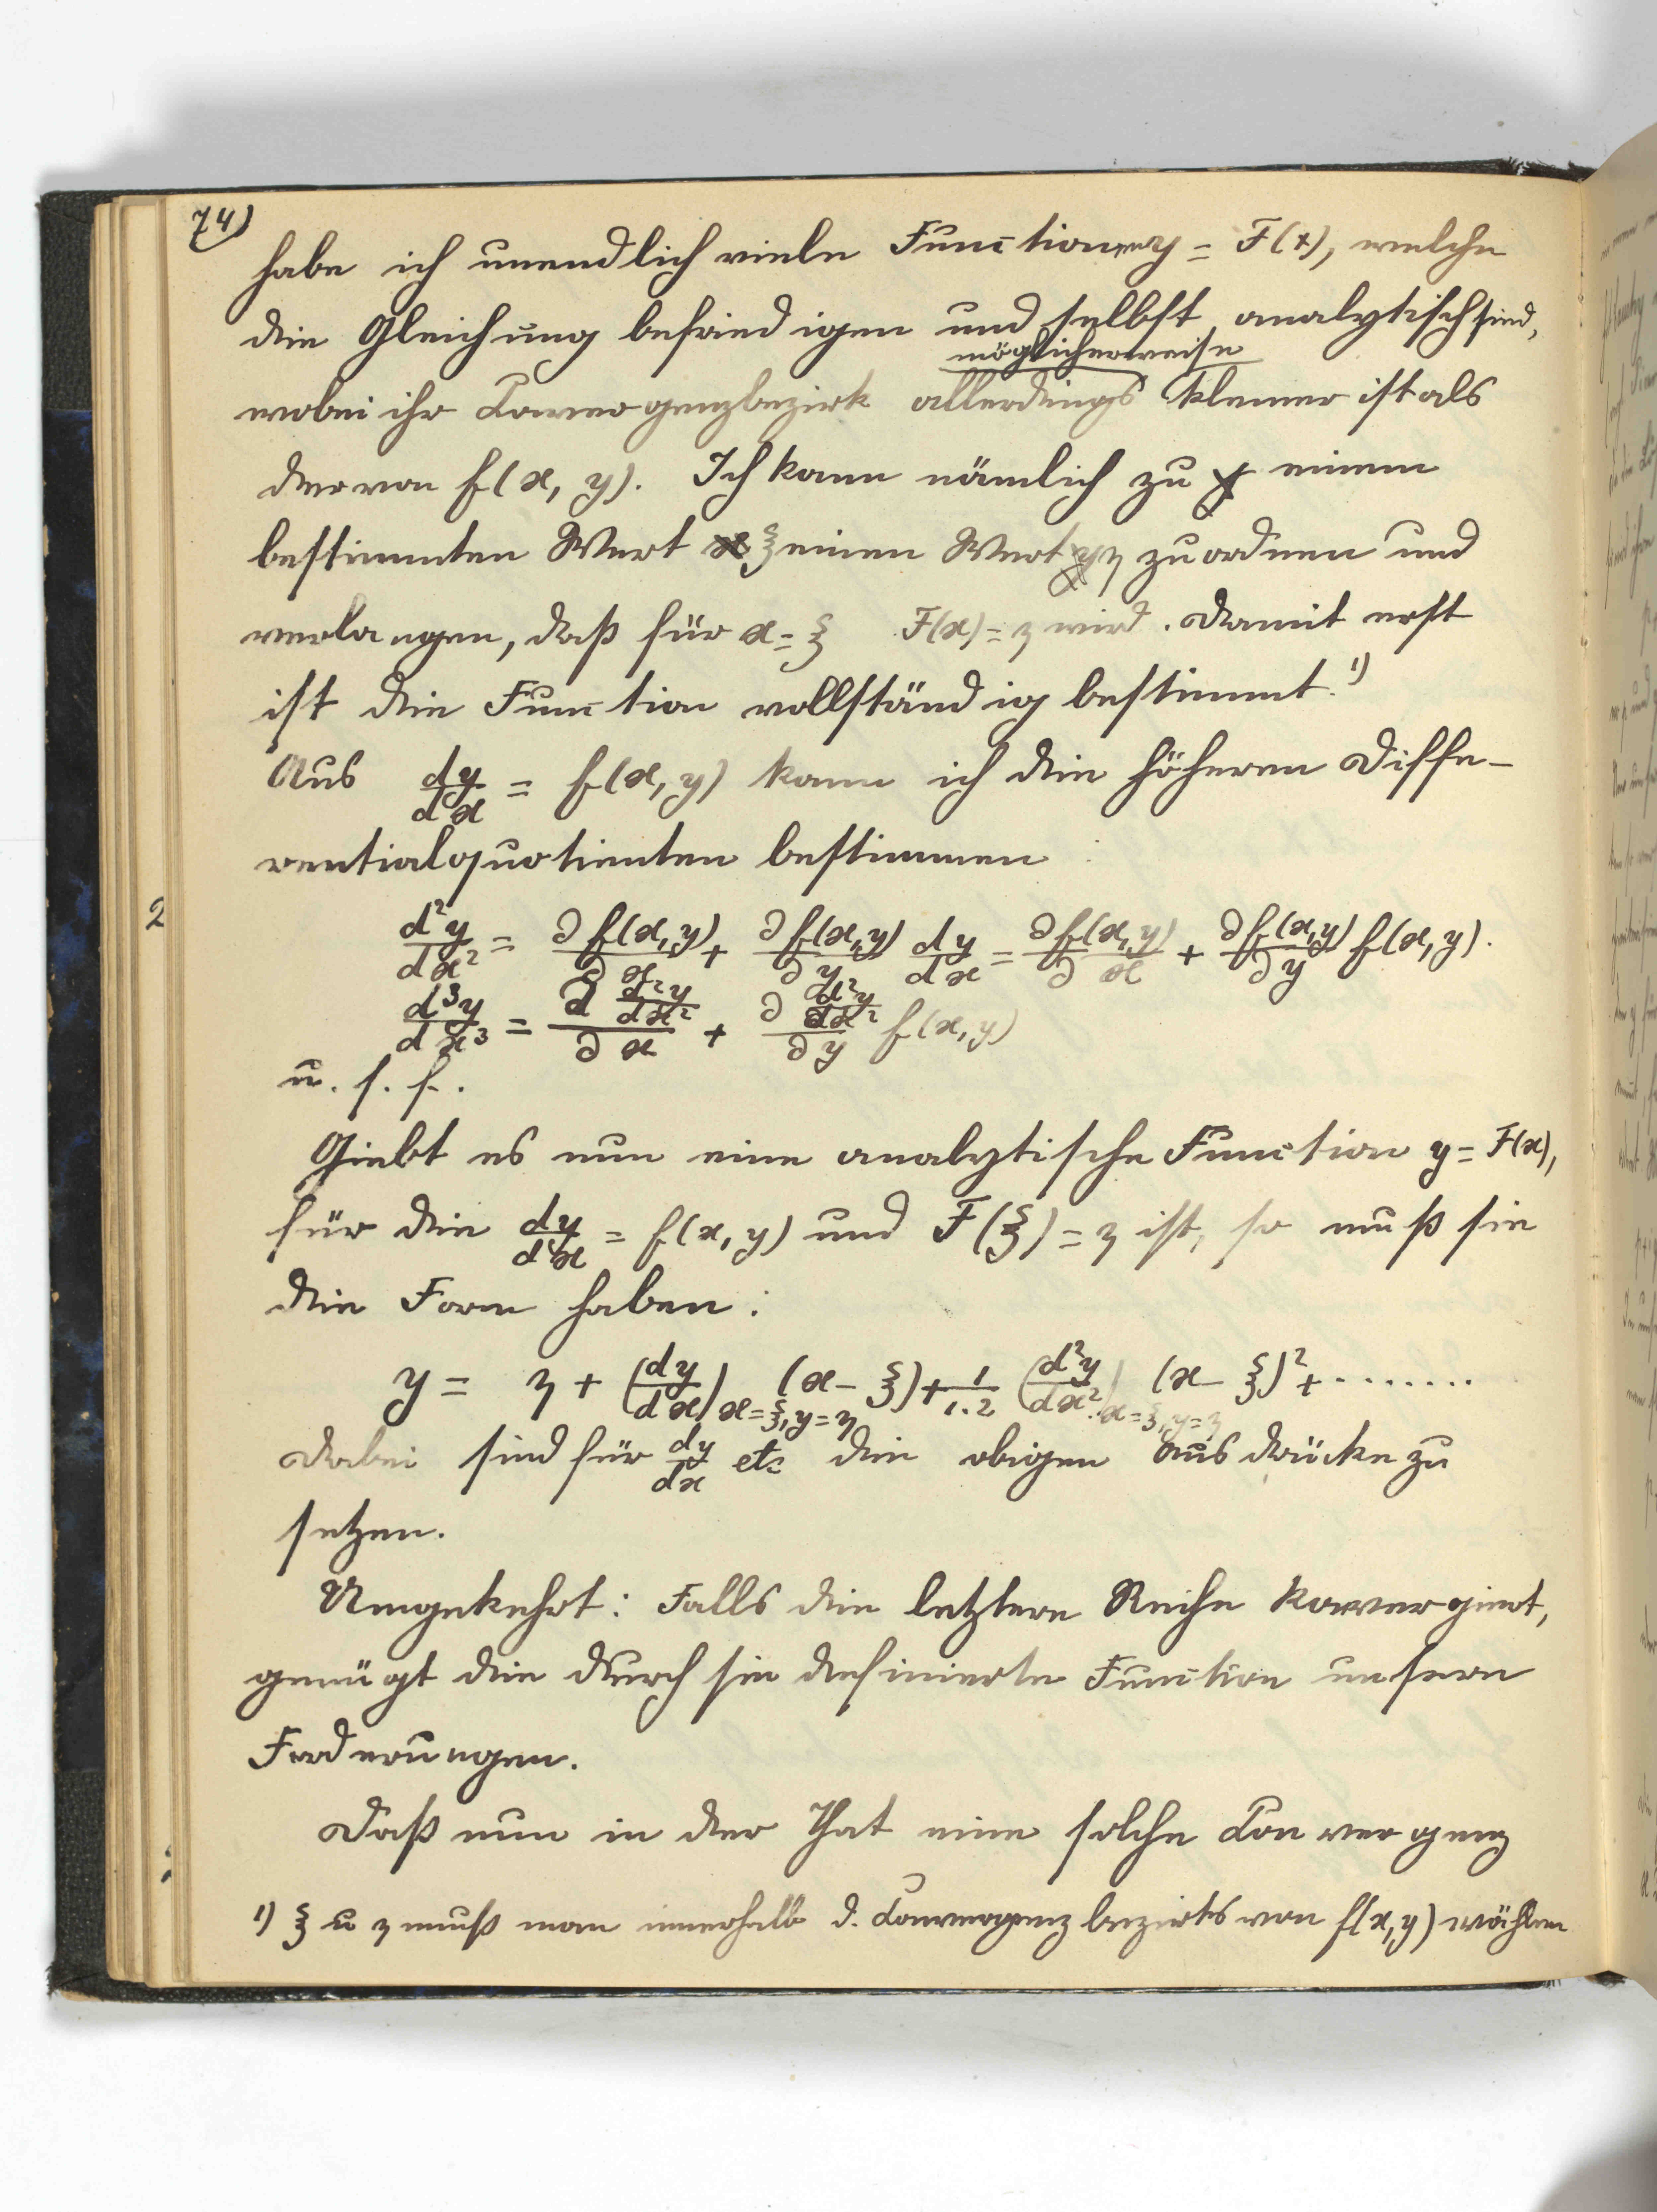 74)
habe ich unendlich viele Functionen y = F(x), welche
die Gleichung befriedigen und selbst analytisch sind,
möglicherweise
wobei ihr Convergenzbezirk allerdings kleiner ist als
der von f(x, y). Ich kann nämlich zu einem
bestimmten Wert ξ einen Wert η zuordnen und
verlangen, daß für x = ξ F(x) = η wird. Damit erst
ist die Function vollständig bestimmt.¹)
Aus dy/dx = f(x, y) kann ich die höheren Diffe-
rentialquotienten bestimmen
d²y/dx² = ∂f(x,y)/∂x + ∂f(x,y)/∂y dy/dx = ∂f(x,y)/∂x + ∂f(x,y)/∂y f(x,y).
d³y/dx³ = ∂ d²y/dx² / ∂x + ∂ d²y/dx² / ∂y f(x,y)
u. s. f.
Giebt es nun eine analytische Function y = F(x),
für die dy/dx = f(x, y) und F(ξ) = η ist, so muß sie
die Form haben:
y = η + (dy/dx) x=ξ, y=η (x − ξ) + 1/1.2 (d²y/dx²) x=ξ, y=η (x − ξ)² + ........
Dabei sind für dy/dx etc die obigen Ausdrücke zu
setzen.
Umgekehrt: Falls die letztere Reihe konvergiert,
genügt die durch sie definierte Function unsern
Forderungen.
Daß nun in der That eine solche Convergenz
¹) ξ u η muß man innerhalb d. Convergenzbezirks von f(x,y) wählen
2